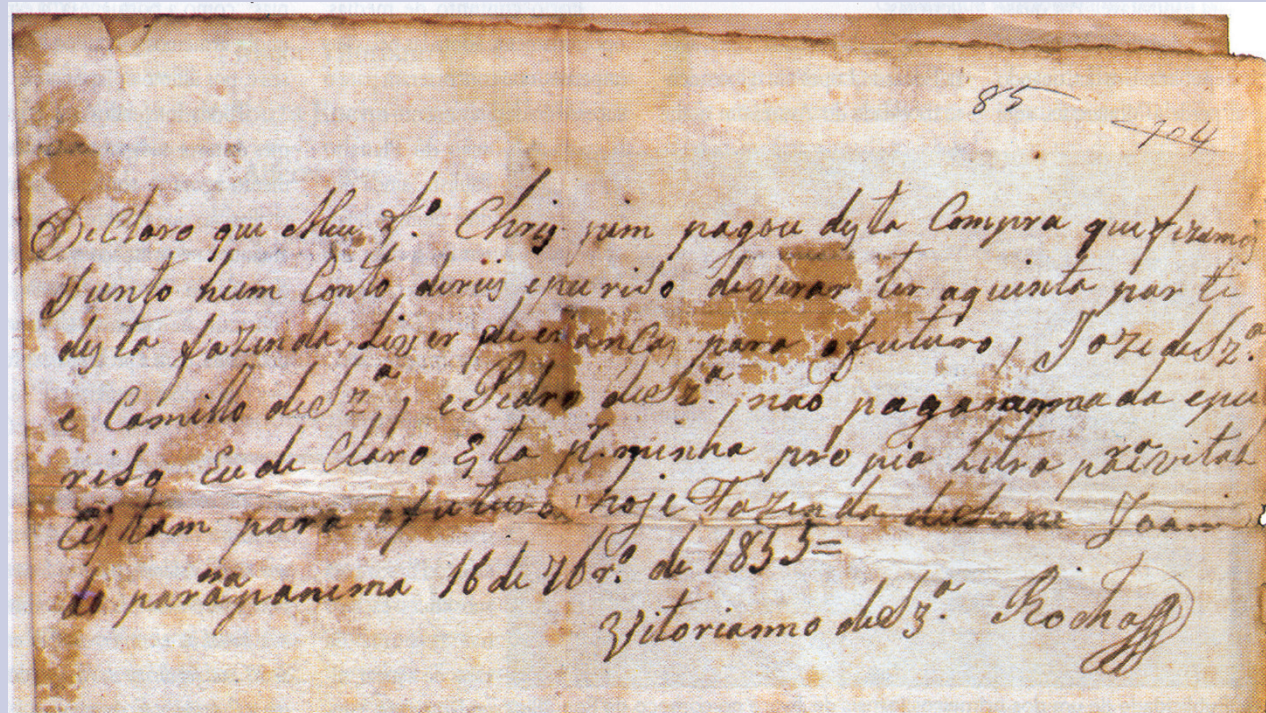 85
704
DeClaro que Meu F.º Chrisjim pagou desta Compra que fizemos
Junto hum Conto dereis epuriso deverar ter aquinta parti
desta fazenda para ofuturo, Joze deSz.ª
e Camillo deSz.ª, e Pedro deSz.ª não pagaram nada epu
riso Eu de Claro Esta p.r minha propia Letra
para ofuturo, hoje Fazenda
do paranapanema 16 de 7br.º de 1855=
Vitorianno deSz.ª Rocha